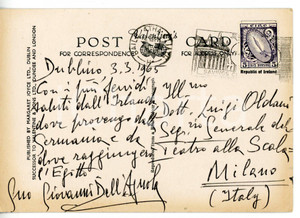 Valentine's
POST CARD
FOR CORRESPONDENCE
Republic of Ireland
PUBLISHED BY MARGARET LYONS LTD, DUBLIN
SUCCESSOR TO VALENTINE & SONS LTD, DUNDEE AND LONDON
Dublino 3.3.1965
Con i più fervidi
saluti dall'Irlanda
dove provengo dalla
Germania e da
dove raggiungerò
l'Egitto
Suo Giovanni Dell'Agnola
Ill.mo
Dott. Luigi Oldani
Segr. Generale del
Teatro alla Scala
Milano
(Italy)